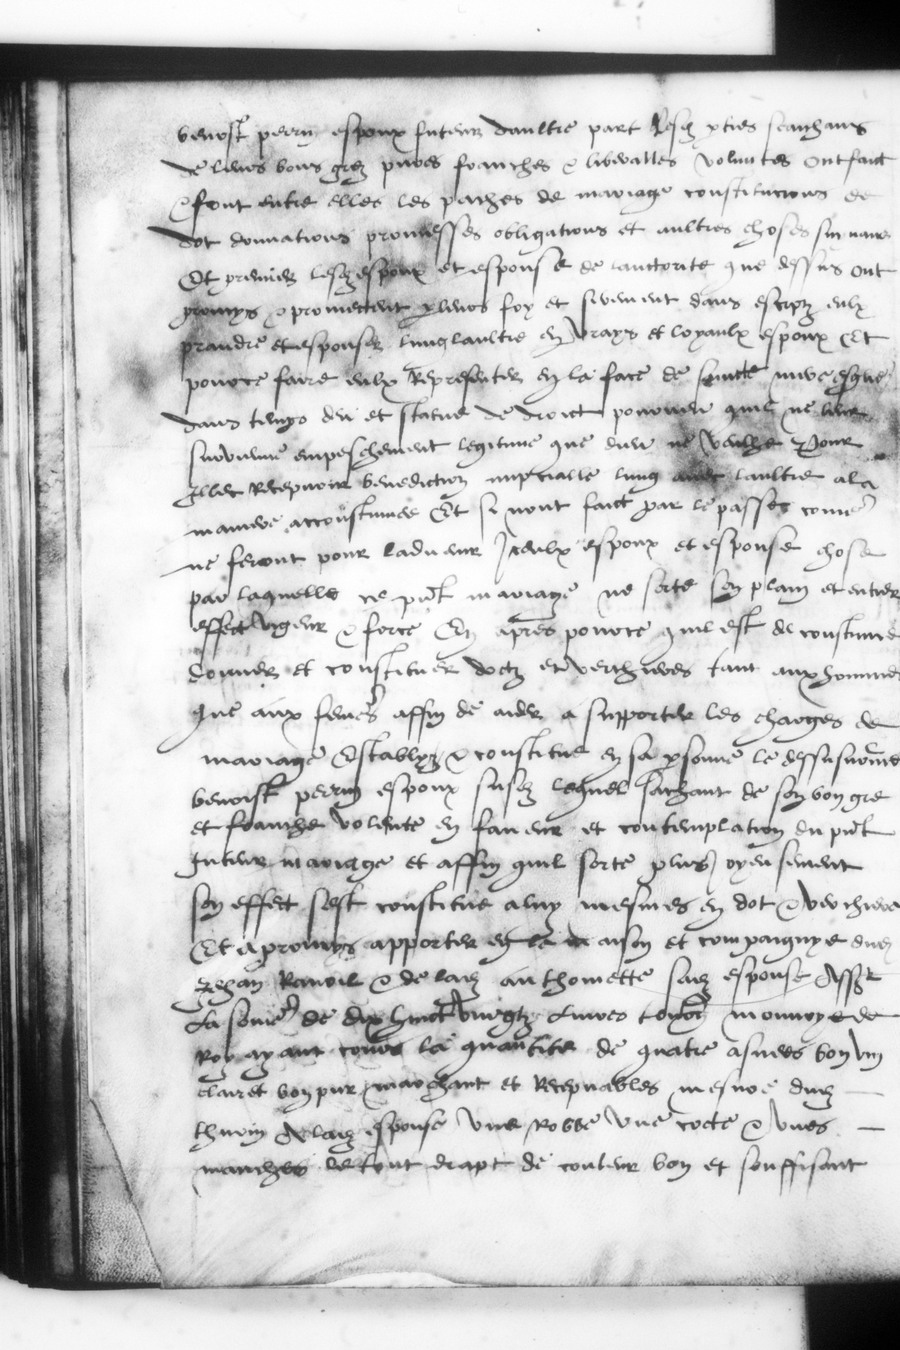 benoist perrin espoux futeur daultre part lesq pties scaichans
de leurs bons grez pures franches & liberalles voluntes ont faict
& font entre elles les paches de mariage constitucions de
dot donnations promesses obligations et aultres choses suivans
Et premier lesq espoux et espouse de lauctorite que dessus ont
promys & promectent p leurs foy et serement dans escriptz eulx
prandre et espouser lung laultre en vrays et loyaulx espoux Et
pource faire eulx representer en la face de saincte mere esglise
dans temps deu et statue de droict pourveu quil ne leur
survienne empeschement legitime que dieu ne veulhe Pour
Illec recepvoir benediction nupcialle lung avec laultre a la
maniere accoustumee Et si nont faict par le passe come
ne feront pour ladvenir Iceulx espoux et espouse chose
par laquelle ce pnt mariage ne sorte son plain et entier
effect vigeur & force Et apres pource quil est de coustume
donner et constituer dotz et verchieres tant aux hommes
que aux femes affin de aider a supporter les charges de
mariage Establyz & constitue en sa psonne le dessusnome
benoist perrin espoux susd lequel saichant de son bon gre
et franche volente en faveur et contemplation du pnt
futeur mariage et affin quil sorte plus oyeusement
son effect sest constitue a luy mesmes en dot & verchiere
Et a promys apporter en la maison et compaignye dud
Jehan Ravoil & de lad anthomette sad espouse Assr
La some de dix huict vingtz livres tourn monnoye de
Roy ayant cours la quantite de quatre asnees bon vin
clairet bon pur marchant et recepvables mesure dud
thurin A lad espouse une robbe une cotte & unes
manches le tout drapt de couleur bon et souffisant